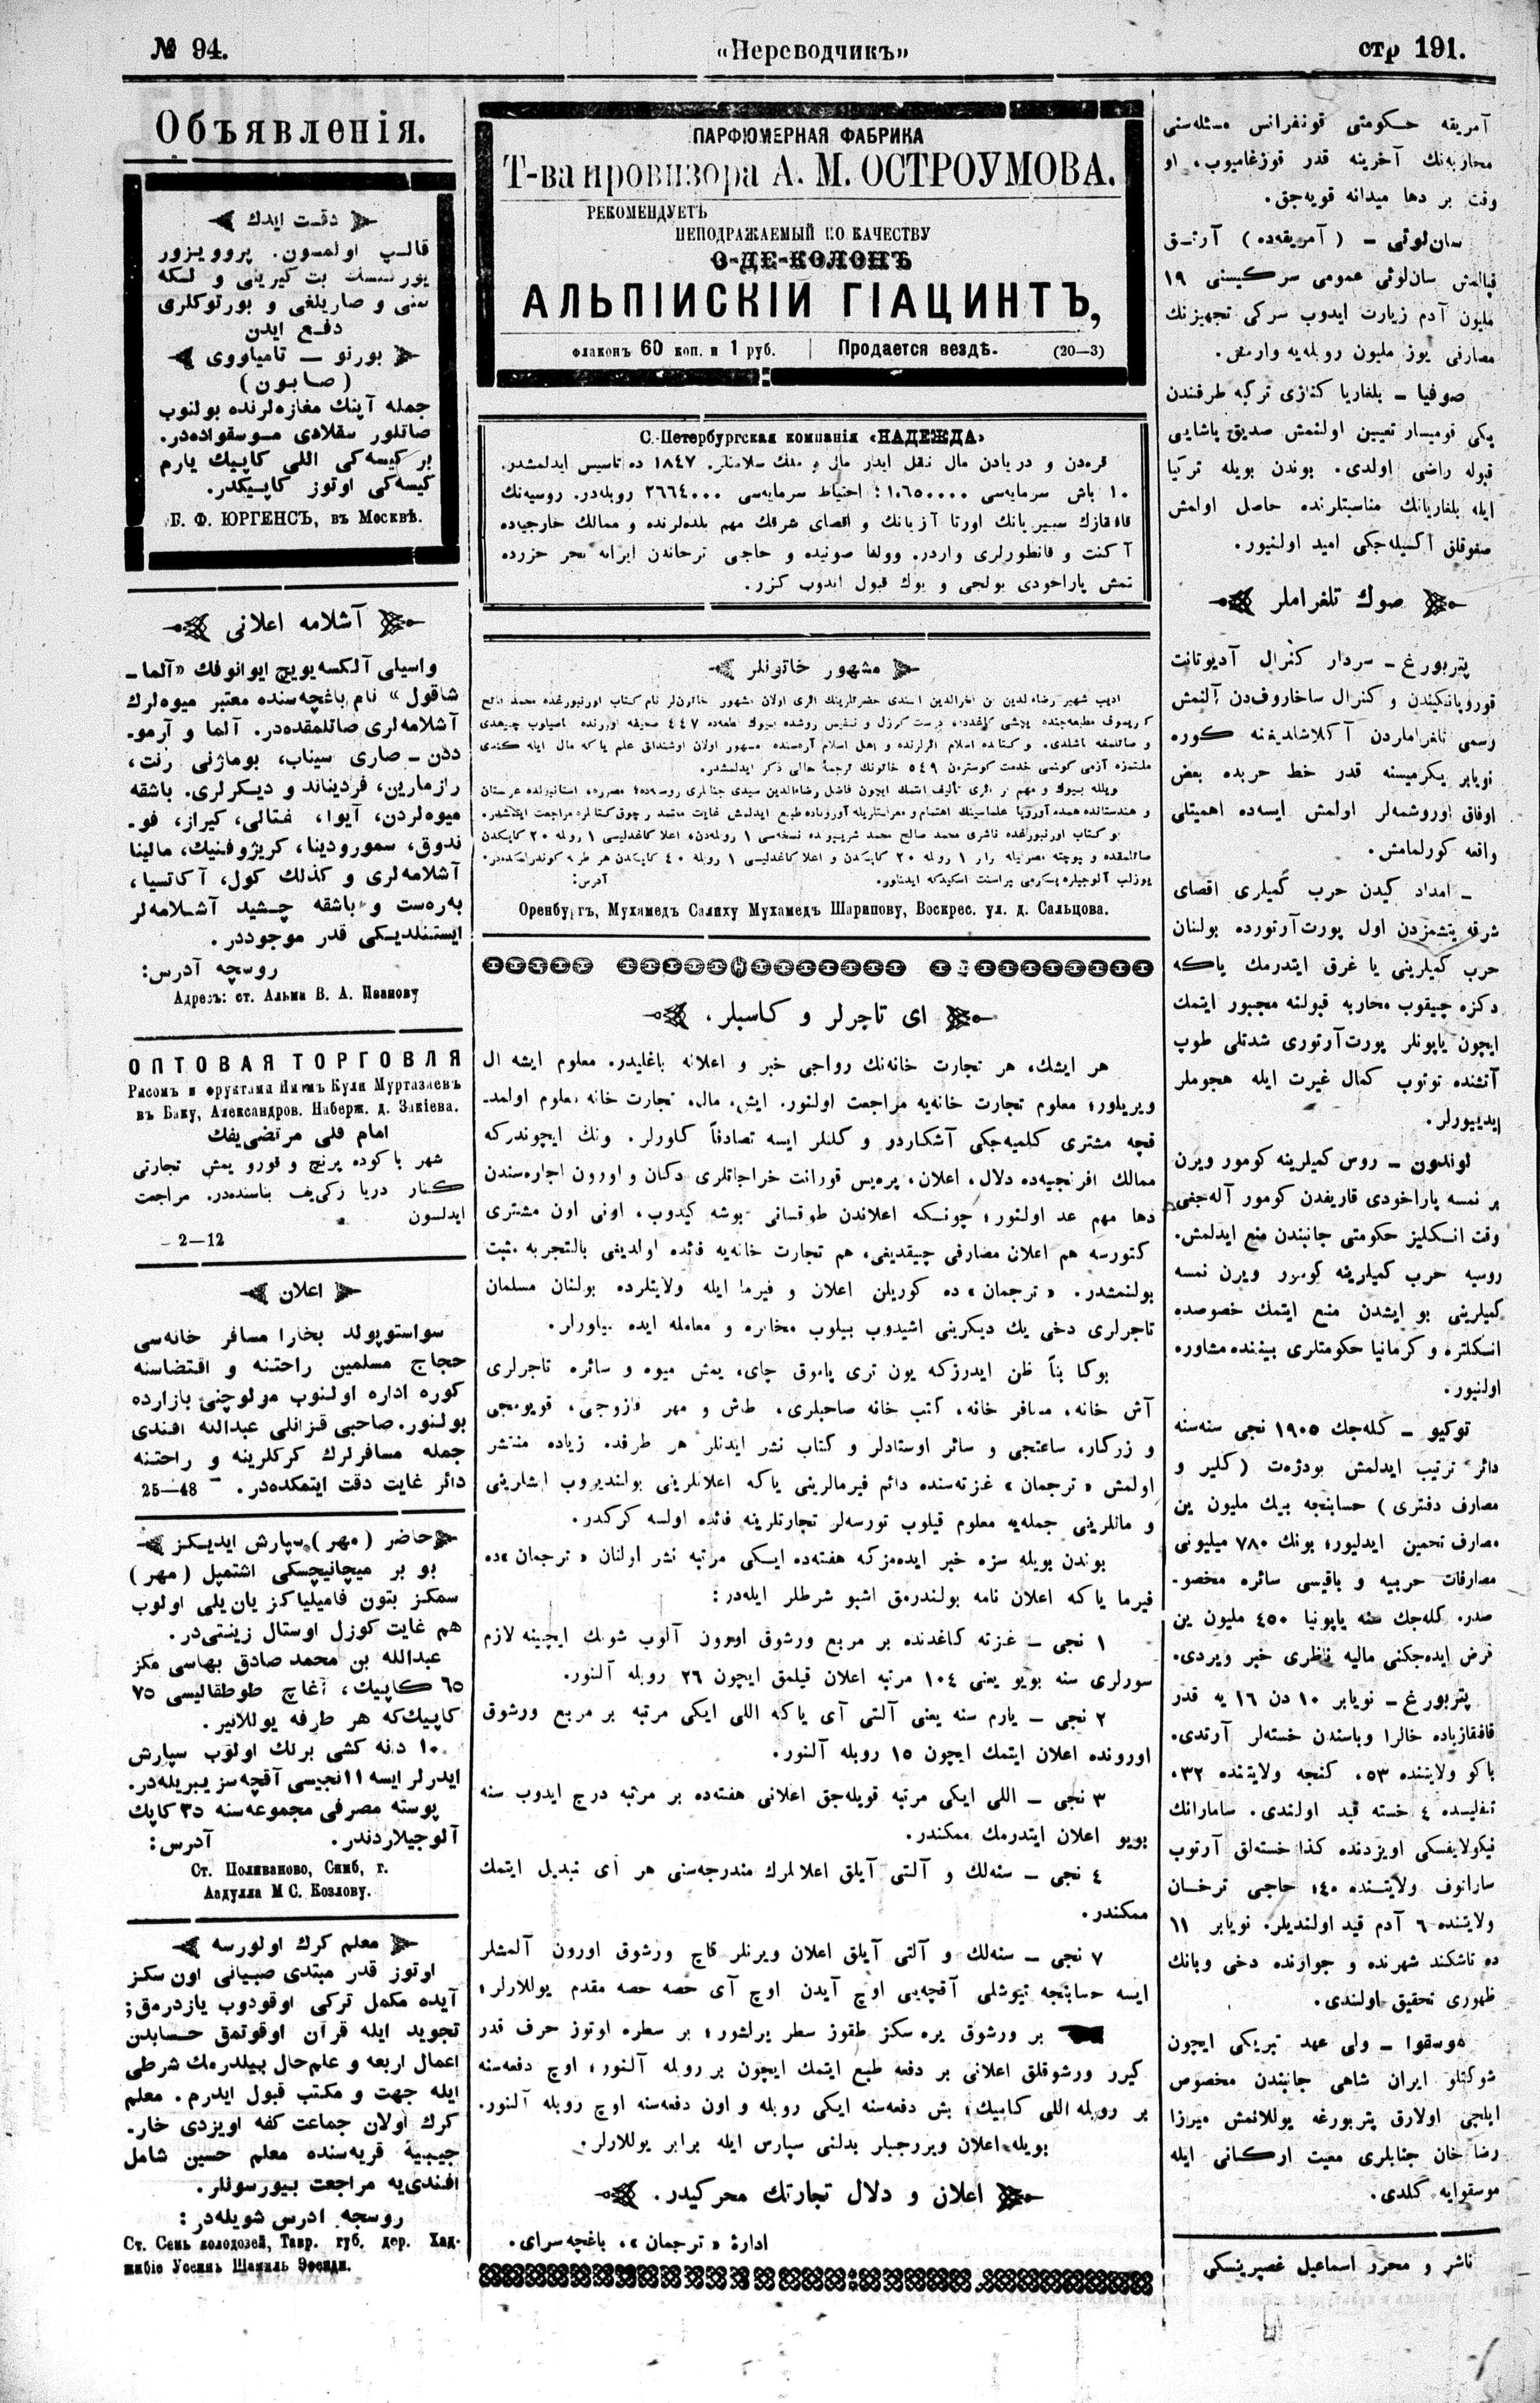 № 94.
«Переводчикъ»
стр 191.
آمریقه حکومتی قونفرانس مسئله‌سنی
محاربه‌نك آخرینه قدر قوزغامیوب، او
وقت بر دها میدانه قویه‌جق.
سان‌لوئی – (آمریقه‌ده) آرتق
قپالمش سان‌لوئی عمومی سرکیسنی ١٩
ملیون آدم زیارت ایدوب سرکی تجهیزنك
مصارفی یوز ملیون روبله‌یه وارمش.
صوفیا – بلغاریا کنازی ترکیه طرفندن
یکی قومیسار تعیین اولنمش صدیق پاشایی
قبوله راضی اولدی. بوندن بویله ترکیا
ایله بلغاریانك مناسبتلرنده حاصل اولمش
صغوقلق اکسیله‌جکی امید اولنیور.
صوك تلغراملر
پتربورغ – سردار کنرال آدیوتانت
قوروپاتکیندن و کنرال ساخاروف‌دن آلنمش
رسمی تلغراملردن آکلاشلدیغنه کوره
نویابر یکرمیسنه قدر خط حربده بعض
اوفاق اوروشمه‌لر اولمش ایسه‌ده اهمیتلی
واقعه کورلمامش.
– امداد کیدن حرب کمیلری اقصای
شرقه یتشمزدن اول پورت‌آرتورده بولنان
حرب کمیلرینی یا غرق ایتدرمك یاکه
دکزه چیقوب محاربه قبولنه مجبور ایتمك
ایچون یاپونلر پورت‌آرتوری شدتلی طوپ
آتشنده توتوب کمال غیرت ایله هجوملر
ایدییورلر.
لوندون – روس کمیلرینه کومور ویرن
بر نمسه پاراخودی قاریفدن کومور آله‌جغی
وقت انکلیز حکومتی جانبندن منع ایدلمش.
روسیه حرب کمیلرینه کومور ویرن نمسه
کمیلرینی بو ایشدن منع ایتمك خصوصده
انکلتره و کرمانیا حکومتلری بیننده مشاوره
اولنیور.
توکیو – کله‌جك ١٩٠٥ نجی سنه‌سنه
دائر ترتیب ایدلمش بودژه‌ت (کلیر و
مصارف دفتری) حسابنجه بیك ملیون ین
مصارف تخمین ایدلیور؛ بونك ٧٨٠ میلیونی
مصارفات حربیه و باقیسی سائره مخصو-
صدر. کله‌جك سنه یاپونیا ٤٥٠ ملیون ین
قرض ایده‌جکنی مالیه ناظری خبر ویردی.
پتربورغ – نویابر ١٠ دن ١٦ یه قدر
قافقازیاده خالرا وباسندن خسته‌لر آرتدی.
باکو ولایتنده ٥٣، کنجه ولایتنده ٣٢،
تفلیسده ٤ خسته قید اولندی. سامارانك
نیکولایفسکی اویزدنده کذا خسته‌لق آرتوب
ساراتوف ولایتنده ٤٠؛ حاجی ترخان
ولایتنده ٦ آدم قید اولندیلر. نویابر ١١
ده تاشکند شهرنده و جوارنده دخی وبانك
ظهوری تحقیق اولندی.
موسقوا – ولی عهد تبریکی ایچون
شوکتلو ایران شاهی جانبندن مخصوص
ایلچی اولارق پتربورغه یوللانمش میرزا
رضا خان جنابلری معیت ارکانی ایله
موسقوایه کلدی.
ناشر و محرر اسماعیل غصپرینسکی
ПАРФЮМЕРНАЯ ФАБРИКА
Т-ва провизора А. М. ОСТРОУМОВА.
РЕКОМЕНДУЕТЪ
НЕПОДРАЖАЕМЫЙ ПО КАЧЕСТВУ
О-ДЕ-КОЛОНЪ
АЛЬПІЙСКІЙ ГІАЦИНТЪ,
флаконъ 60 коп. и 1 руб. | Продается вездѣ. (20—3)
С.-Петербургская компанія «НАДЕЖДА»
قره‌دن و دریادن مال نقل ایدر مال و ملك سلامتلر. ١٨٤٧ ده تأسیس ایدلمشدر.
١٠ باش سرمایه‌سی ١٠٦٥٠٠٠٠؛ احتیاط سرمایه‌سی ٢٦٦٤٠٠٠ روبله‌در. روسیه‌نك
قافقازك سبیریانك اورتا آزیانك و اقصای شرقك مهم بلده‌لرنده و ممالك خارجیه‌ده
آکنت و قانطورلری واردر. وولغا صوئیده و حاجی ترخاندن ایرانه بحر حزرده
تمش پاراخودی یولجی و یوك قبول ایدوب کزر.
مشهور خاتونلر
ادیب شهیر رضاءالدین بن فخرالدین افندی حضرتلرینك اثری اولان مشهور خاتونلر نام کتاب اورنبورغده محمد فاتح
Оренбургъ, Мухамедъ Салиху Мухамедъ Шарипову, Воскрес. ул. д. Сальцова.
ای تاجرلر و کاسبلر،
هر ایشك، هر تجارت خانه‌نك رواجی خبر و اعلانه باغلیدر. معلوم ایشه ال
ویریلور؛ معلوم تجارت خانه‌یه مراجعت اولنور. ایش، مال، تجارت خانه معلوم اولمد-
قچه مشتری کلمیه‌جکی آشکاردر و کلنلر ایسه تصادفاً کلورلر. ونك ایچوندرکه
ممالك افرنجیه‌ده دلال، اعلان، پره‌یس قورانت خراجاتلری دکان و اورون اجاره‌سندن
دها مهم عد اولنور؛ چونکه اعلاندن طوقسانی بوشه کیدوب، اونی اون مشتری
کتورسه هم اعلان مصارفی چیقدیغی، هم تجارت خانه‌یه فائده اولدیغی بالتجربه مثبت
بولنمشدر. «ترجمان» ده کوریلن اعلان و فیرما ایله ولایتلرده بولنان مسلمان
تاجرلری دخی یك دیکرینی اشیدوب بیلوب مخابره و معامله ایده بیلورلر.
بوکا بناً ظن ایدرزکه یون تری پاموق چای، یمش میوه و سائره تاجرلری
آش خانه، مسافر خانه، کتب خانه صاحبلری، طاش و مهر قازوجی، قویومجی
و زرکار، ساعتجی و سائر اوستادلر و کتاب نشر ایدنلر هر طرفده زیاده منتشر
اولمش «ترجمان» غزته‌سنده دائم فیرمالرینی یاکه اعلانلرینی بولندیروب ایشلرینی
و ماللرینی جمله‌یه معلوم قیلوب تورسه‌لر تجارتلرینه فائده اولسه کرکدر.
بوندن بویله سزه خبر ایده‌مزکه هفته‌ده ایکی مرتبه نشر اولنان «ترجمان»ده
فیرما یاکه اعلان نامه بولندرمق اشبو شرطلر ایله‌در:
١ نجی – غزته کاغدنده بر مربع ورشوق اورون آلوب شونك ایچینه لازم
سوزلری سنه بویو یعنی ١٠٤ مرتبه اعلان قیلمق ایچون ٢٦ روبله آلنور.
٢ نجی – یارم سنه یعنی آلتی آی یاکه اللی ایکی مرتبه بر مربع ورشوق
اورونده اعلان ایتمك ایچون ١٥ روبله آلنور.
٣ نجی – اللی ایکی مرتبه قویله‌جق اعلانی هفته‌ده بر مرتبه درج ایدوب سنه
بویو اعلان ایتدرمك ممکندر.
٤ نجی – سنه‌لك و آلتی آیلق اعلانلرك مندرجه‌سنی هر آی تبدیل ایتمك
ممکندر.
٧ نجی – سنه‌لك و آلتی آیلق اعلان ویرنلر قاچ ورشوق اورون آلمشلر
ایسه حسابنجه تیوشلی آقچه‌یی اوچ آیدن اوچ آی حصه حصه مقدم یوللارلر؛
بر ورشوق یره سکز طقوز سطر یرلشور؛ بر سطره اوتوز حرف قدر
کیرر ورشوقلق اعلانی بر دفعه طبع ایتمك ایچون بر روبله آلنور؛ اوچ دفعه‌سنه
بر روبله اللی کاپیك؛ بش دفعه‌سنه ایکی روبله و اون دفعه‌سنه اوچ روبله آلنور.
بویله اعلان ویررجیلر بدلنی سپارس ایله برابر یوللارلر.
اعلان و دلال تجارتك محرکیدر.
ادارهٔ «ترجمان»، باغچه‌سرای.
Объявленія.
دقت ایدك
قالپ اولمسون. پروویزور
یورگنسك بت کیرینی و لکه
سنی و صاریلغی و بورتوکلری
دفع ایدن
بورنو – تامیاووی
(صابون)
جمله آپتك مغازه‌لرنده بولنوب
صاتلور سقلادی موسقواده‌در.
بر کیسه‌کی اللی کاپیك یارم
کیسه‌کی اوتوز کاپیکدر.
Б. Ф. ЮРГЕНСЪ, въ Москвѣ.
آشلامه اعلانی
واسیلی آلکسه‌یویچ ایوانوفك «آلما-
شاقول» نام باغچه‌سنده معتبر میوه‌لرك
آشلامه‌لری صاتلمقده‌در. آلما و آرمو-
ددن – صاری سیناپ، بوماژنی رنت،
رازمارین، فردیناند و دیکرلری. باشقه
میوه‌لردن، آیوا، شفتالی، کیراز، فو-
ندوق، سمورودینا، کریژوفنیك، مالینا
آشلامه‌لری و کذلك کول، آکاتسیا،
به‌ره‌ست و باشقه چشید آشلامه‌لر
ایستنلدیکی قدر موجوددر.
روسچه آدرس:
Адресъ: ст. Альма В. А. Иванову
ОПТОВАЯ ТОРГОВЛЯ
Рисомъ и фруктами Имамъ Кули Муртазаевъ
въ Баку, Александров. Набереж. д. Закіева.
امام قلی مرتضی‌یفك
شهر باکوده پرنج و قورو یمش تجارتی
کنار دریا زکی‌یف بناسنده‌در. مراجعت
ایدلسون
2—12
اعلان
سواستوپولده بخارا مسافر خانه‌سی
حجاج مسلمین راحتنه و اقتضاسنه
کوره اداره اولنوب مولوچنی بازارده
بولنور. صاحبی قزانلی عبدالله افندی
جمله مسافرلرك کرکلرینه و راحتنه
دائر غایت دقت ایتمکده‌در. 25—48
حاضر (مهر) سپارش ایدیکز
بو بر میچانیچسکی اشتمپل (مهر)
سمکز بتون فامیلیاکز یان یلی اولوب
هم غایت کوزل اوستال زینتی‌در.
عبدالله بن محمد صادق بهاسی مکز
٦٥ کاپیك، آغاچ طوطقالیسی ٧٥
کاپیك‌که هر طرفه یوللانیر.
١٠ دنه کشی برلك اولوب سپارش
ایدرلر ایسه ١١نجیسی آقچه‌سز یبریله‌در.
پوسته مصرفی مجموعه‌سنه ٣٥ کاپك
آلوجیلاردندر. آدرس:
Ст. Поливаново, Симб. г.
Абдулла М С. Козлову.
معلم کرك اولورسه
اوتوز قدر مبتدی صبیانی اون سکز
آیده مکمل ترکی اوقودوب یازدرمق؛
تجوید ایله قرآن اوقوتمق حسابدن
اعمال اربعه و علم‌حال بیلدرمك شرطی
ایله جهت و مکتب قبول ایدرم. معلم
کرك اولان جماعت کفه اویزدی خار-
جیبیه قریه‌سنده معلم حسین شامل
افندی‌یه مراجعت بیورسونلر.
روسچه ادرس شویله‌در:
Ст. Семь колодезей, Тавр. губ. дер. Хад-
жибіе Усеинъ Шамиль Эфенди.